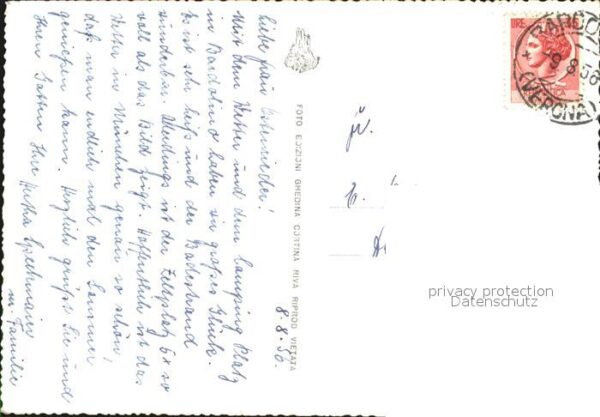 8.8.56.
Liebe Frau Osternieder!
Mit dem Wetter und dem Camping Platz
in Bardolino haben wir großes Glück.
Es ist sehr heiß und der Badestrand
wunderbar. Allerdings ist der Zeltplatz 6x so
voll als das Bild zeigt. Hoffentlich ist das
Wetter in München genau so schön,
daß man endlich mal den Sommer
genießen kann. Herzlich grüßt Sie und
Ihren Gatten Ihre Hertha
u. Familie
FOTO EDIZIONI GHEDINA CORTINA RIVA RIPROD VIETATA
LIRE
BARDO
9.8.56
(VERONA)
privacy protection
Datenschutz